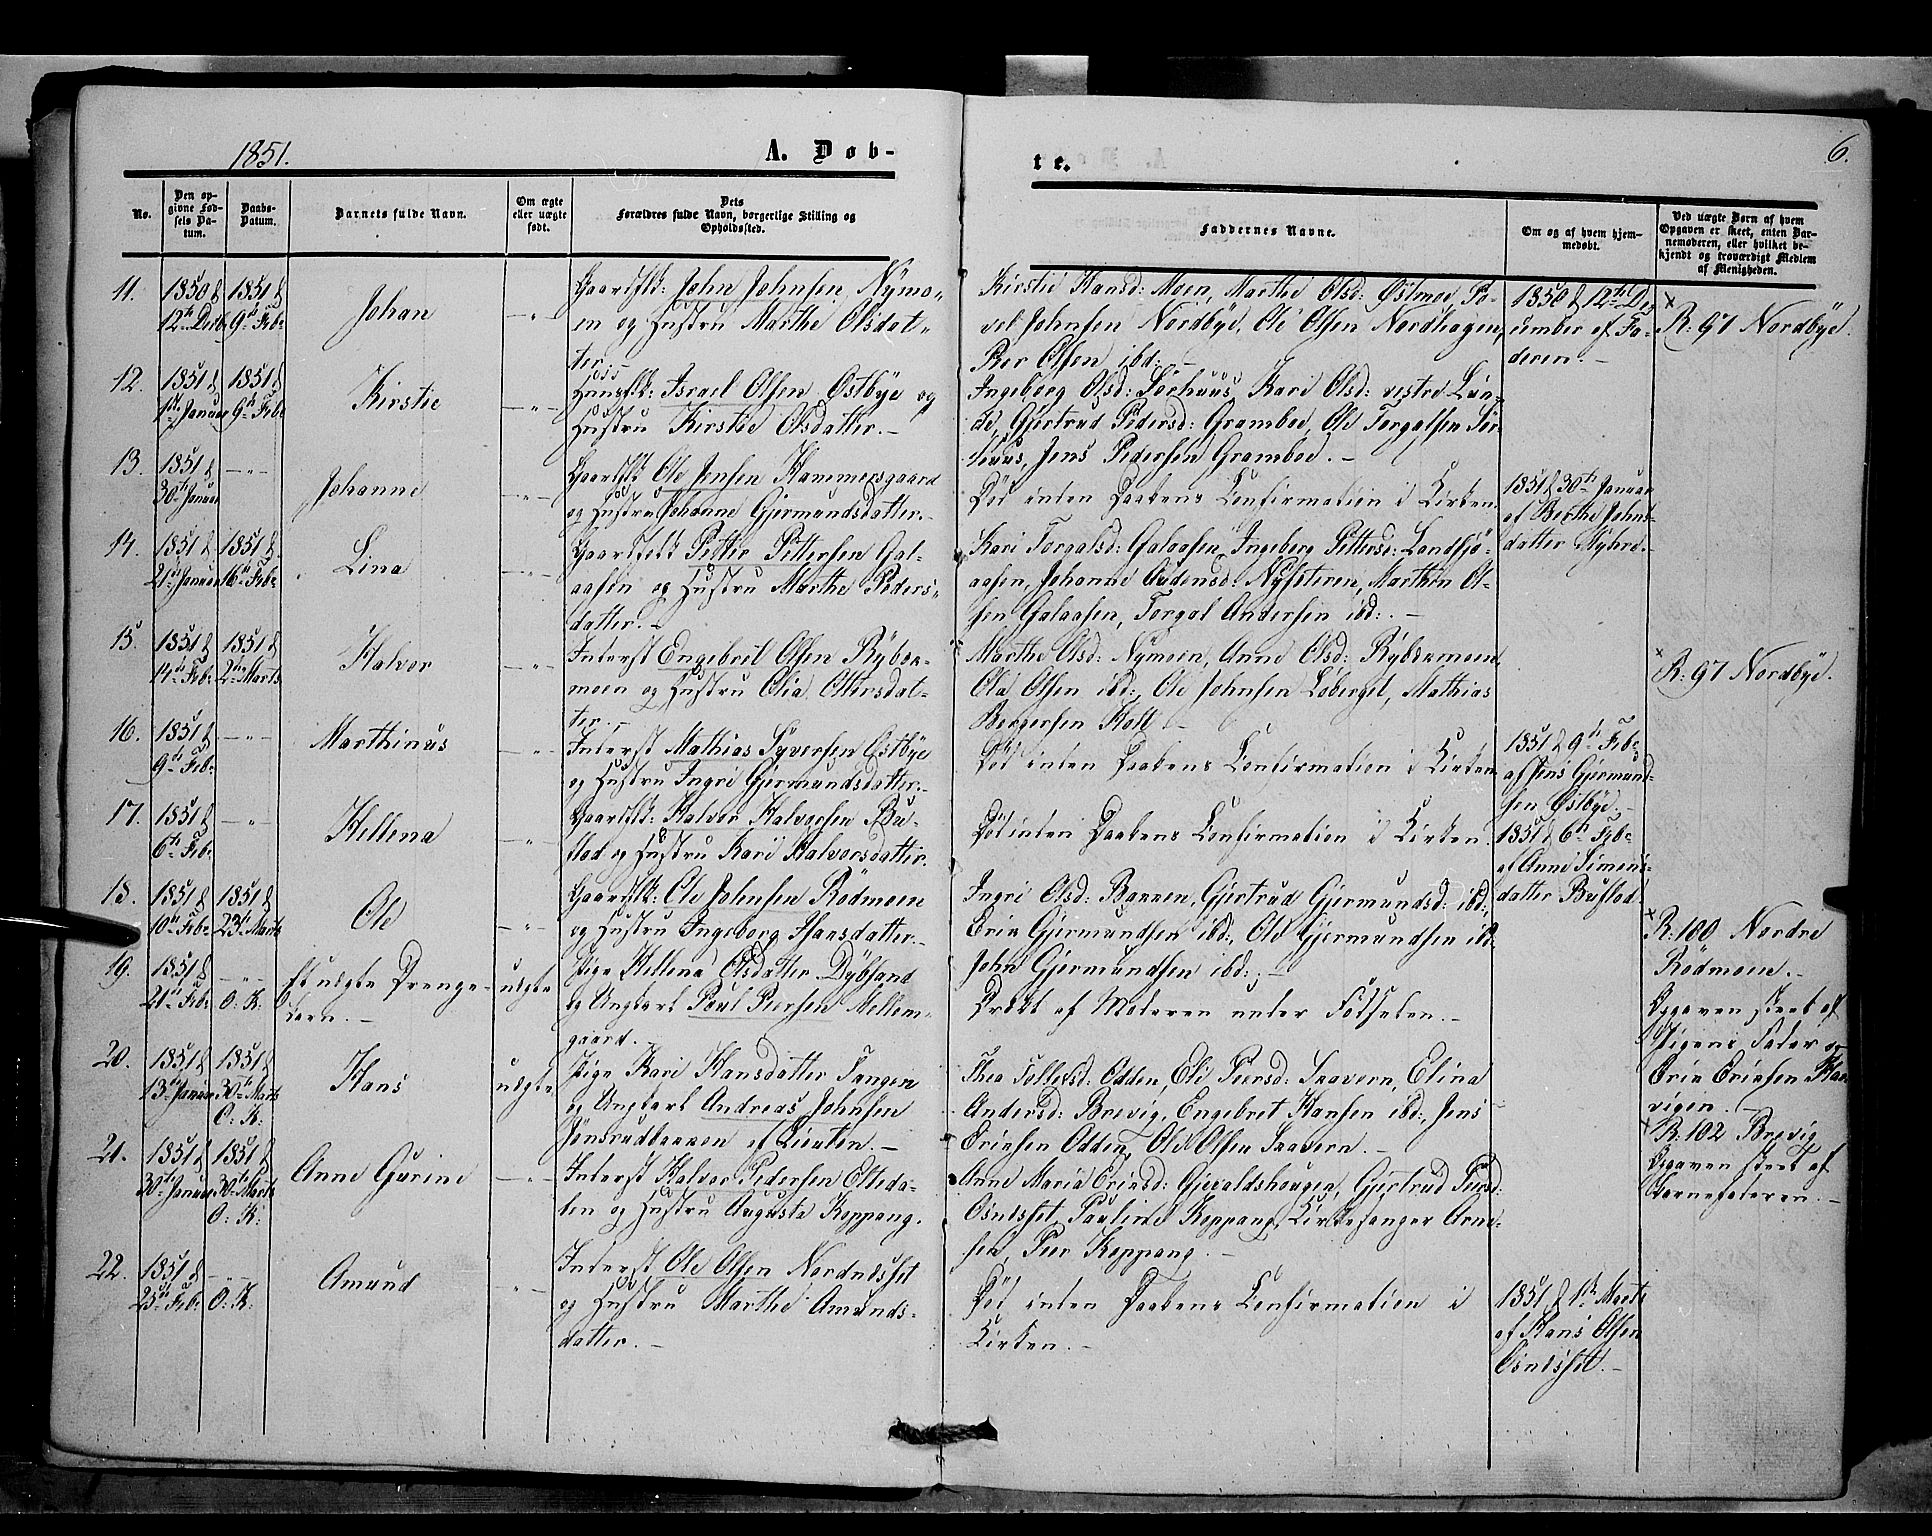 1851.
A. Døb-
te.
6.
No.
Den op-
givne Fød-
sels Da-
tum.
Daabs-
Datum.
Barnets fulde Navn.
Om ægte
eller uægte
født.
Dets
Forældres fulde Navn, borgerlige Stilling og
Opholdssted.
Faddernes Navne.
Om og af hvem hjem-
medøbt.
Ved uægte Børn af hvem
Opgaven er skeet, enten Bar-
nemoderen, eller hvilket be-
kjendt og troværdigt Medlem
af Menigheden.
11.
1850 d
12te Decb
1851 d
9de Feb:
Johan
-"-
Gaardsk: John Johnsen Nymo-
en og Hustru Marthe Olsdat-
ter
Kirstie Hansd: Moen, Marthe Olsd: Østmoe, Po-
vel Johnsen Nordbye, Ole Olsen Nordhagen,
Peer Olsen ibd: -
1850 d 12te De-
cember af Fa-
deren. -
x
R: 97 Nordbye.
12.
1851 d
1ste Januar
1851 d
9de Feb:
Kirstie
-"-
Huusmk: Israel Olsen Østbye og
Hustru Kirstie Olsdatter. -
Ingeborg Olsd: Sørhuus, Kari Olsd: vestre Lun-
de, Gjertrud Pedersd: Gramboe, Ole Torgalsen Sør-
huus, Jens Pedersen Gramboe. -
13.
1851 d
30te Januar
-"-
Johanne
-"-
Gaardsk Ole Jensen Hammersgaard
og Hustru Johanne Gjermundsdatter. -
Død inden Daabens Confirmation i Kirken.
1851 d 30te Januar
af Berthe Johns-
datter Myhre. -
14.
1851 d
21de Januar
1851 d
16de Feb:
Lina
-"-
Gaardsk Petter Pettersen Gal-
aasen og Hustru Marthe Peders-
datter. -
Kari Torgalsd: Galaasen, Ingeborg Petters: Landsjø-
aasen, Johanne Audensd: Nysteren, Marthin Ol-
sen Galaasen, Torgal Andersen ibd: . -
15.
1851 d
14de Feb:
1851 d
2den Marts
Halvor
-"-
Inderst Engebret Olsen Rybse-
moen og Hustru Olia Olsdat-
ter. -
Marthe Olsd: Nymoen, Anne Olsd: Rybsemoen,
Ola Olsen ibd:, Ole Johnsen Løberget, Mathias
Bergersen Koll -
x
R: 97 Nordbye.
16.
1851 d
9de Feb:
-"-
Marthinus
-"-
Inderst Mathias Syversen Østbye
og Hustru Ingri Gjermundsdatter. -
Død inden Daabens Confirmation i Kirken
1851 d 9de Feb:
af Jens Gjermund-
sen Østbye. -
17.
1851 d
6te Feb:
-"-
Hellena
-"-
Gaardsk: Halvor Halvorsen Bu-
stad og Hustru Kari Halvorsdatter.
Død inden Daabens Confirmation i Kirken.
1851 d 6te Feb:
af Anne Simens-
datter Bustad.
18.
1851 d
10de Feb:
1851 d
23de Marts
Ole
-"-
Gaardsk: Ole Johnsen Rødmoen
og Hustru Ingeborg Hansdatter. -
Ingri Olsd: Bakken, Gjertrud Gjermundsd: ibd:,
Erik Gjermundsen ibd:, Ole Gjermundsen ibd:
John Gjermundsen ibd: . -
x
R: 100 Nordre
Rødmoen. -
19.
1851 d
21de Feb:
-"-
O: K:
Et uægte Drenge-
barn. -
uægte
Pige Hellena Olsdatter Dybsand
og Ungkarl Poul Peersen Mellem-
gaard. -
Dræbt af Moderen under Fødselen. -
Opgaven skeet af
Pigens Fader og
Erik Eriksen Haa-
vigen. -
20.
1851 d
13de Januar
1851 d
30te Marts
O: K:
Hans
uægte
Pige Kari Hansdatter Tangen
og Ungkarl Andreas Johnsen
Jønsrudbakken af Lieuten. -
Thea Tollefsd: Odden, Eli Peersd: Saavern, Elina
Andersd: Brevig, Engebret Hansen ibd:, Jens
Eriksen Odden, Ole Olsen Saavern. -
x
R: 102 Brevig
Opgaven skeet af
Barnefaderen. -
21.
1851 d
30te Januar
1851 d
30te Marts
O: K:
Anne Gurine
-"-
Inderst Halvor Pedersen Elleda-
len og Hustru Augusta Koppang.
Anne Maria Eriksd: Gjeraldshougen, Gjertrud Peersd:
Osnesset, Pauline Koppang, Kirkesanger Arne-
sen, Peer Koppang. -
22.
1851 d
25de Feb:
-"-
O: K:
Amund
-"-
Inderst Ole Olsen Nordnesset
og Hustru Marthe Amunds-
datter. -
Død inden Daabens Confirmation i
Kirken. -
1851 d 1ste Marts
af Hans Olsen
Osnesset. -